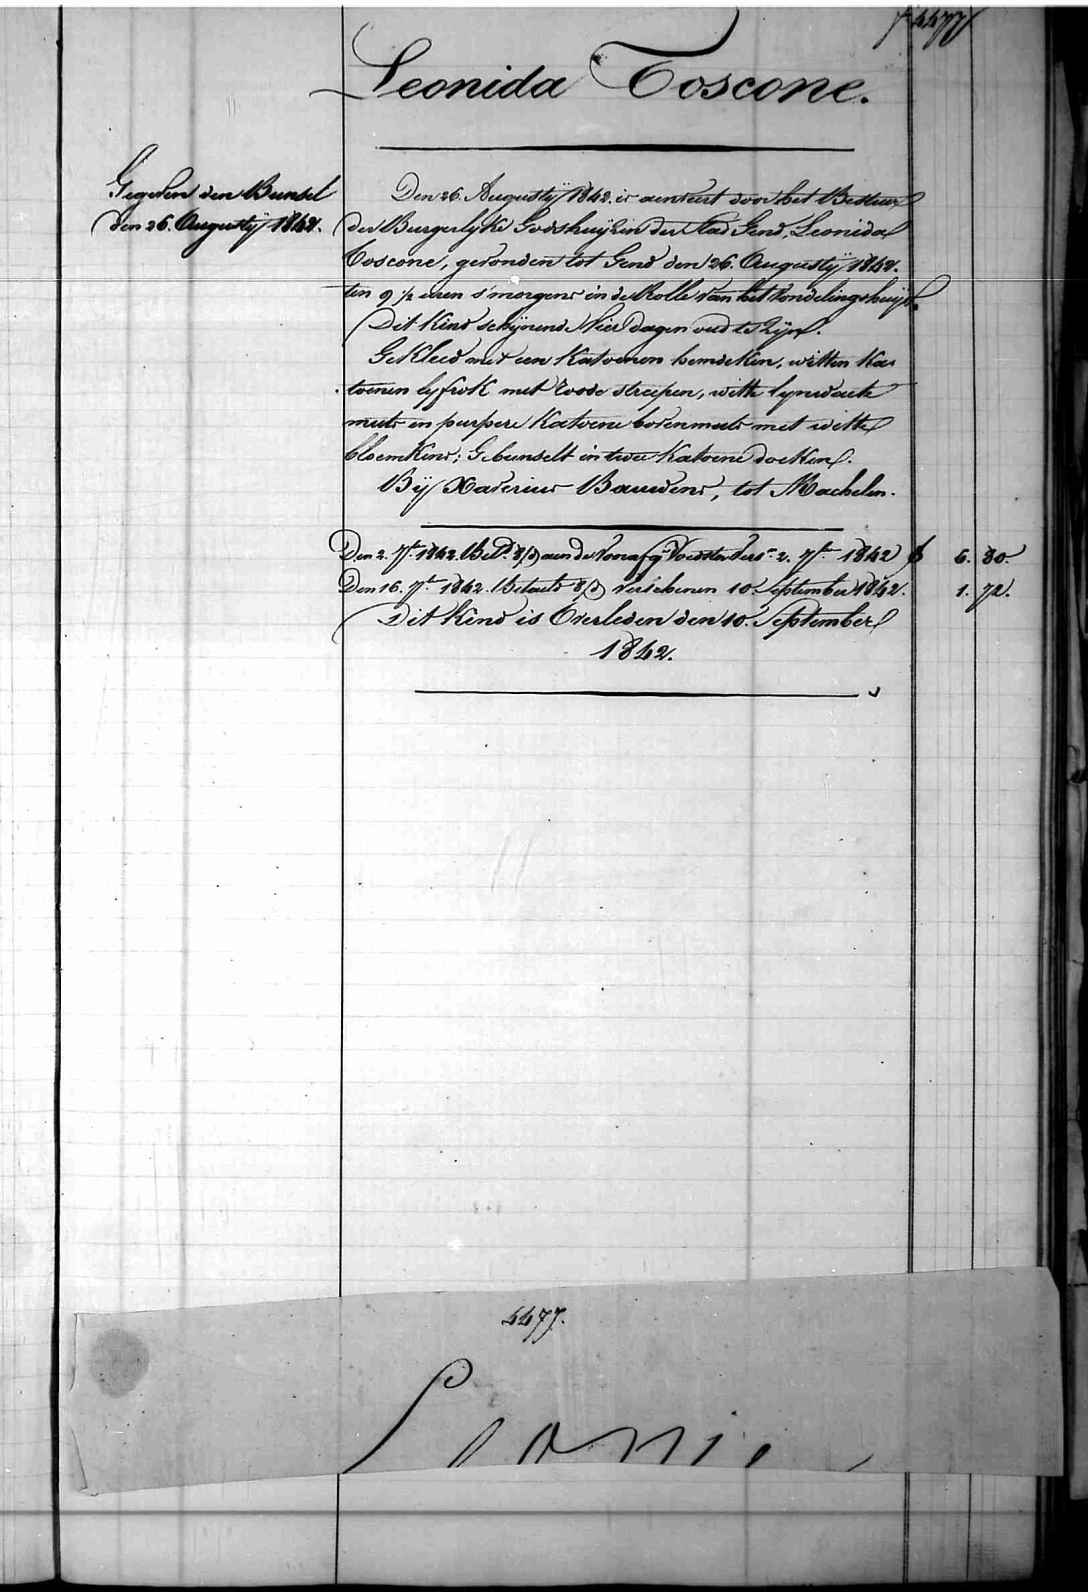 4477
Leonida Toscone.
Gegeven den Bunsel
den 26. Augustÿ 1842.
Den 26. Augustÿ 1842. is aenveirt door het Bestuur
der Burgerlyke Godshuÿzen der Stad Gend, Leonida
Toscone, gevonden tot Gend den 26. Augustÿ 1842.
ten 9 ½ uren s'morgens in de Rolle van het Vondelingshuÿs.
Dit Kind schÿnend Vier dagen oud te Zÿn.
Gekleed met een Katoenen hemdeken, witten Ka-
toenen lyfrok met roode streepen, witte lynwaete
muts en purpere Katoene bovenmuts met witte
bloemkens; Gebunselt in twee Katoene doeken.
Bÿ Xaverius Bauwens, tot Machelen.
Den 2. 7.bre 1842. Bet.d aen de Voedster Vers.n 2. 7.bre 1842 f 6. 80.
Den 16. 7.bre 1842. Betaelt verschenen 10. September 1842. 1. 72.
Dit Kind is Overleden den 10. September
1842.
4477.